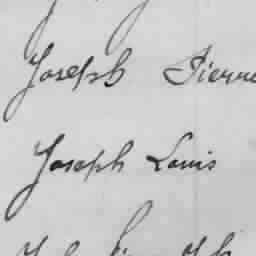 Joseph Pierre
Joseph Louis